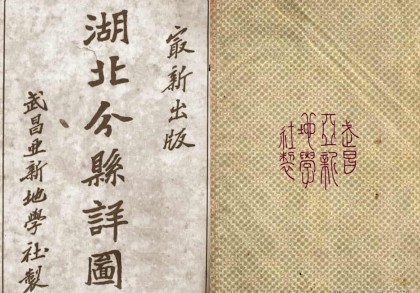 最新出版
湖北分縣詳圖
武昌亜新地學社製
武昌
亞新
地學
社製